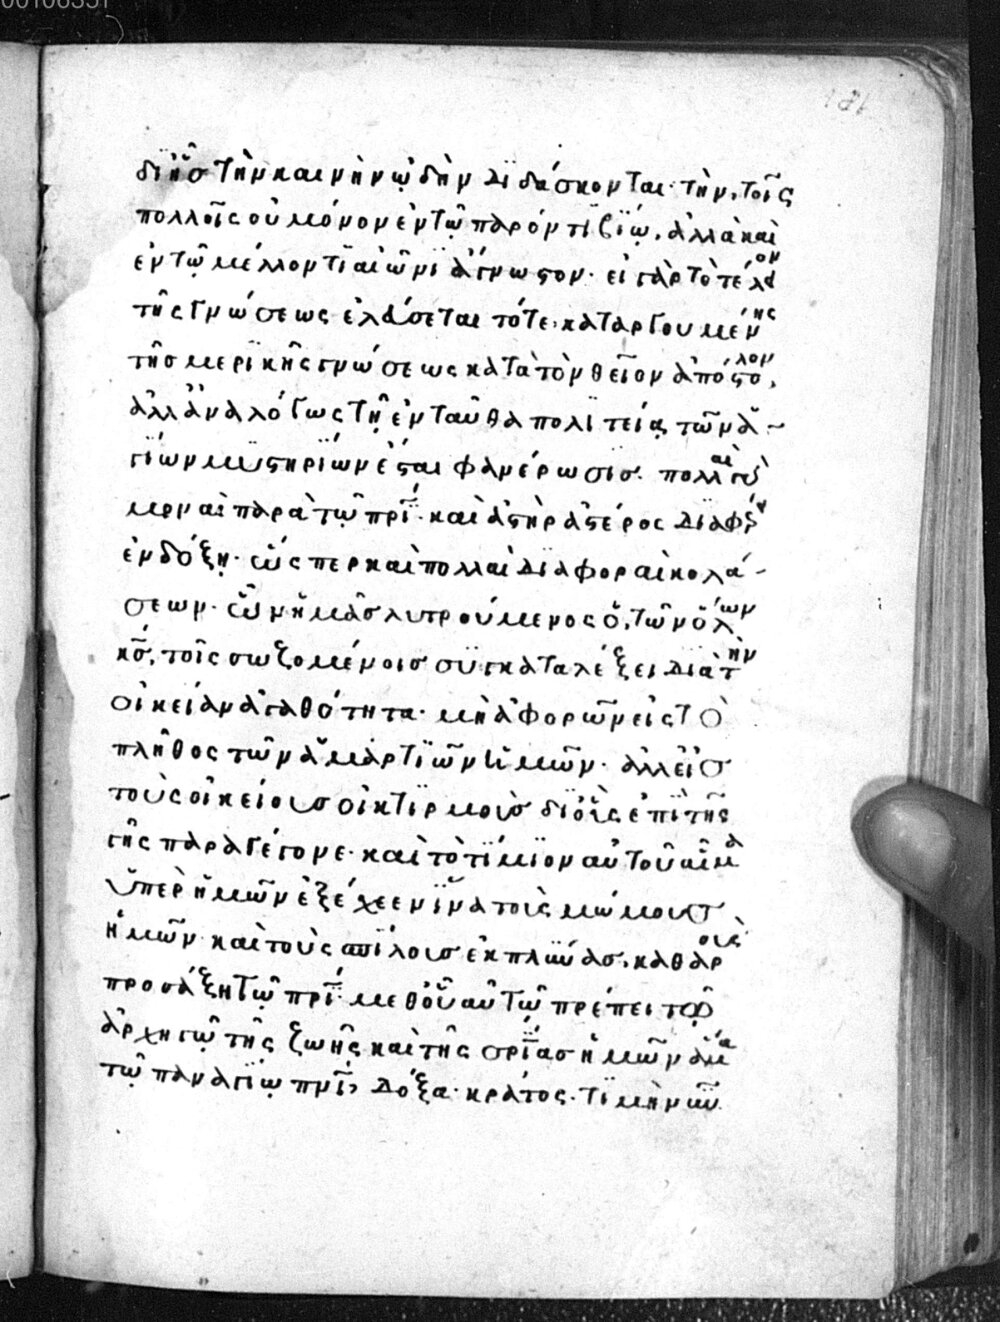 00106351
181
δι ἧς τὴν καινὴν ᾠδὴν διδάσκονται· τὴν, τοῖς
πολλοῖς οὐ μόνον ἐν τῷ παρόντι βίῳ, ἀλλὰ καὶ
ἐν τῷ μέλλοντι αἰῶνι ἄγνωστον· εἰ γὰρ τὸ τέλειον
τῆς γνώσεως ἐλεύσεται τότε, καταργουμένης
τῆς μερικῆς γνώσεως κατὰ τὸν θεῖον ἀπόστολον,
ἀλλ ἀναλόγως τῇ ἐνταῦθα πολιτείᾳ τῶν ἁ-
γίων μυστηρίων ἔσται φανέρωσις. πολλαὶ γὰρ
μοναὶ παρὰ τῷ πρί· καὶ ἀστὴρ ἀστέρος διαφέρει
ἐν δόξῃ· ὥσπερ καὶ πολλαὶ διάφοραι κολά-
σεων· ὧν ἡμᾶς λυτρούμενος ὁ, τῶν ὅλων
κς, τοῖς σωζομένοις συγκαταλέξει διὰ τὴν
οἰκείαν ἀγαθότητα· μὴ ἀφορῶν εἰς τὸ
πλῆθος τῶν ἁμαρτιῶν ἡμῶν· ἀλλ εἰς
τοὺς οἰκείους οἰκτιρμοὺς δι οἷς ἐπὶ τῆς
γῆς παραγέγονε· καὶ τὸ τίμιον αὐτοῦ αἷμα
ὑπὲρ ἡμῶν ἐξέχεεν ἵνα τοὺς μώμους
ἡμῶν καὶ τοὺς σπίλους ἐκπλύνας, καθαροὺς
προσάξῃ τῷ πρί· μεθ οὗ αὐτῷ πρέπει τῷ
ἀρχηγῷ τῆς ζωῆς καὶ τῆς σρίας ἡμῶν ἅμα
τῷ παναγίῳ πνι, δόξα· κράτος· τιμὴ νῦν